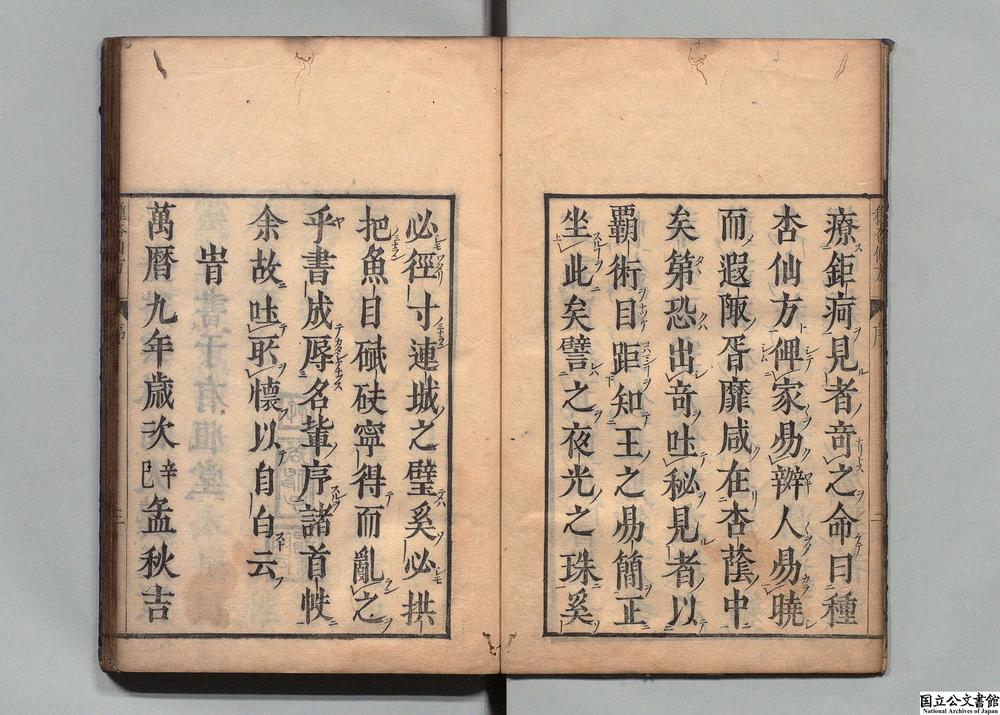 療鉅疴見者奇之命曰種
杏仙方俾家易辦人易曉
而遐陬胥靡咸在杏蔭中
矣第恐出奇吐秘見者以
覇術目距知王之易簡正
坐此矣譬之夜光之珠奚
必徑寸連城之璧奚必拱
把魚目碔砆寧得而亂之
乎書成辱名軰序諸首帙
余故吐䏂懐以自白云
旹
萬曆九年歲次辛巳孟秋吉
国立公文書館
National Archives of Japan